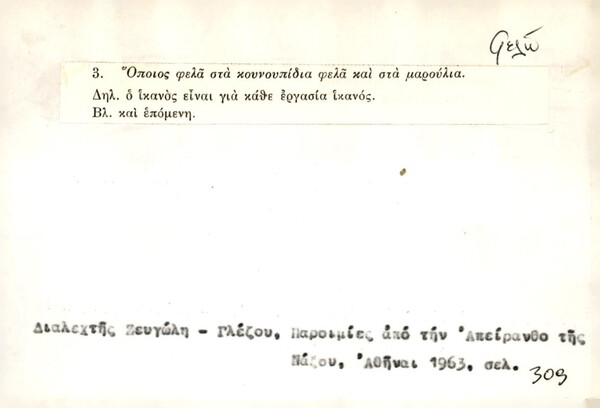 φελῶ
3. Ὅποιος φελᾶ στὰ κουνουπίδια φελᾶ καὶ στὰ μαρούλια.
Δηλ. ὁ ἱκανὸς εἶναι γιὰ κάθε ἐργασία ἱκανός.
Βλ. καὶ ἑπόμενη.
Διαλεχτῆς Ζευγώλη - Γλέζου, Παροιμίες ἀπό τήν Ἀπείρανθο τῆς
Νάξου, Ἀθῆναι 1963, σελ. 309